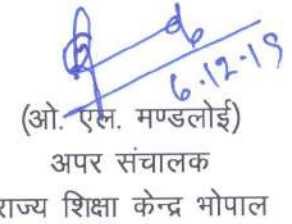 6.12.19
(ओ. एल. मण्डलोई)
अपर संचालक
राज्य शिक्षा केन्द्र भोपाल